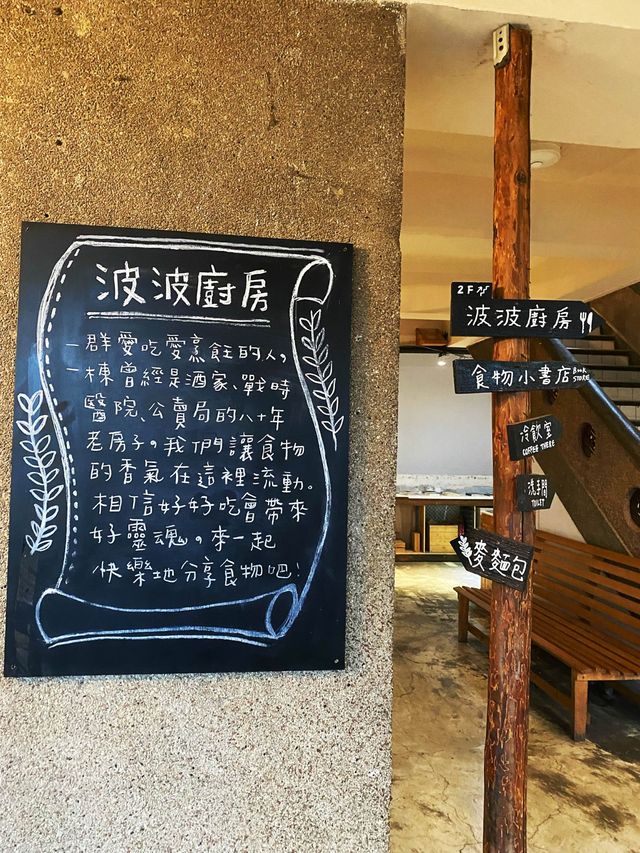 波波廚房
一群愛吃愛烹飪的人，
一棟曾經是酒家、戰時
醫院、公賣局的八十年
老房子。我們讓食物
的香氣在這裡流動。
相信好好吃會帶來
好靈魂。來一起
快樂地分享食物吧！
2F
波波廚房
食物小書店 BOOK STORE
冷飲室
COFFEE THERE
洗手間
TOILET
麥麵包